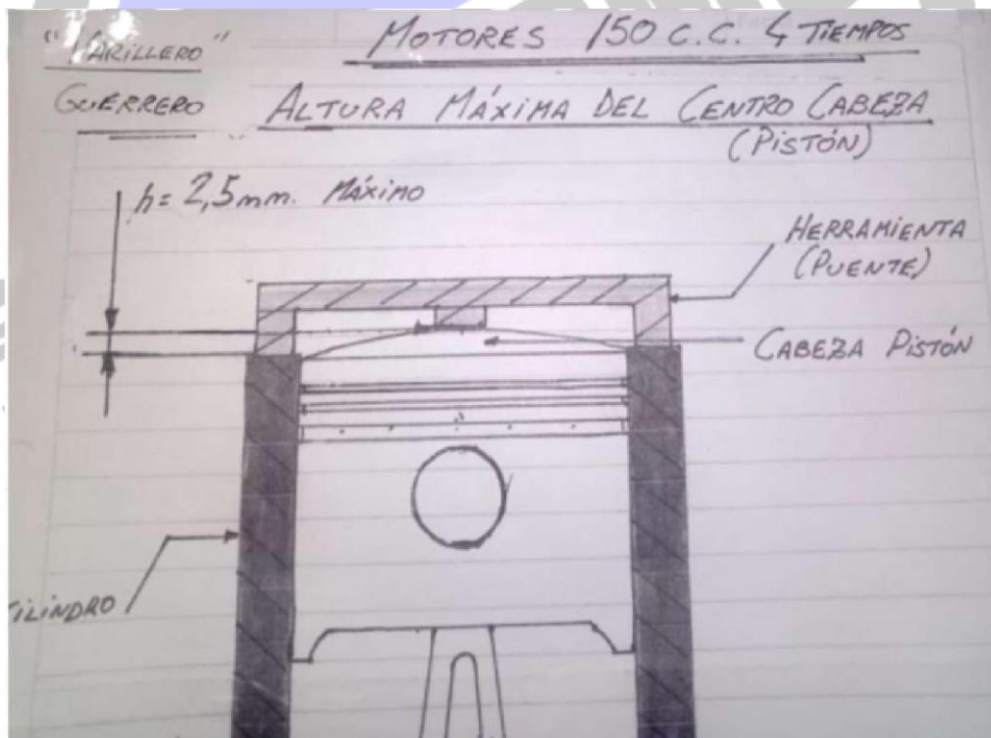 "VARILLERO"
MOTORES 150 C.C. 4 TIEMPOS
GUERRERO
ALTURA MÁXIMA DEL CENTRO CABEZA
(PISTÓN)
h= 2,5mm. MÁXIMO
HERRAMIENTA
(PUENTE)
CABEZA PISTÓN
CILINDRO